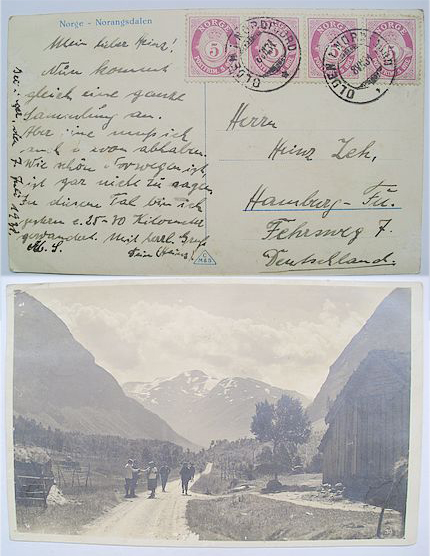 Norge - Norangsdalen
NORGE
5
NORGE
5
NORGE
5
OLDEN I NORDFJORD
OLDEN I NORDFJORD
Mein lieber Heinz!
Nun kommt
gleich eine ganze
Sammlung an.
Aber eine muß ich
auch von abhaben.
Wie schön Norwegen ist,
ist gar nicht zu sagen.
In diesem Tal bin ich
gestern c. 25-30 Kilometer
gewandert. Mit herzl. Gruß
Dein
den 7 Juli
Herrn
Heinz
Hamburg - Fu.
Fehrsweg 7.
Deutschland.